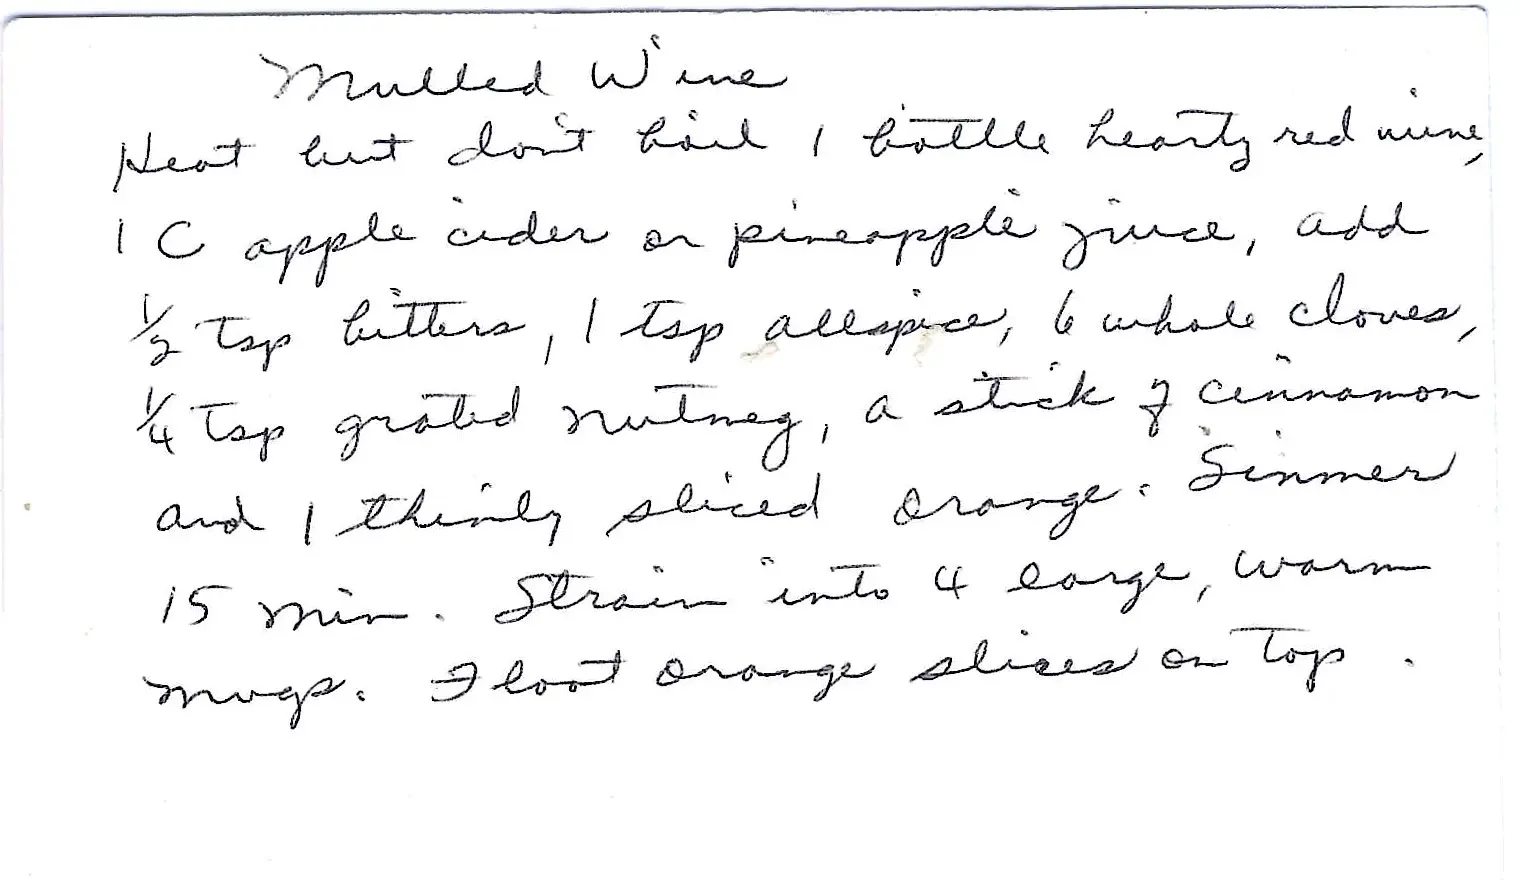 Mulled Wine
Heat but don't boil 1 bottle hearty red wine,
1 C apple cider or pineapple juice, add
1/2 tsp bitters, 1 tsp allspice, 6 whole cloves,
1/4 tsp grated nutmeg, a stick of cinnamon
and 1 thinly sliced orange. Simmer
15 min. Strain into 4 large, warm
mugs. Float orange slices on top.